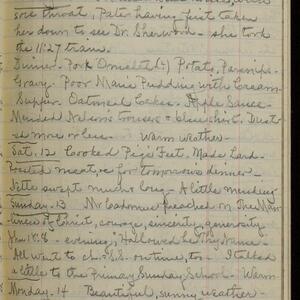 sore throat, Pater having first taken
her down to see Dr. Sherwood - she took
the 11:27 train.
Dinner. Pork Omelet Potato, Parsnips.
Gravy. Poor Man's Pudding with Cream.
Supper. Oatmeal Cakes. Apple Sauce.
Mended Nelson's trousers & blue shirt. Dust-
ed more or less. Warm weather.
Sat. 12 Cooked Pigs Feet. Made Lard.
Roasted meat, for tomorrows dinner.
Nettie swept much long. A little
Sunday. 13 Mr. preached on The Man-
liness of Christ, courage, sincerity, generosity.
evening, "Hallowed be Thy Name
All went to ch. & S.S. I talked
a little to the Primary Sunday School. Warm
Monday. 14 Beautiful, sunny weather -